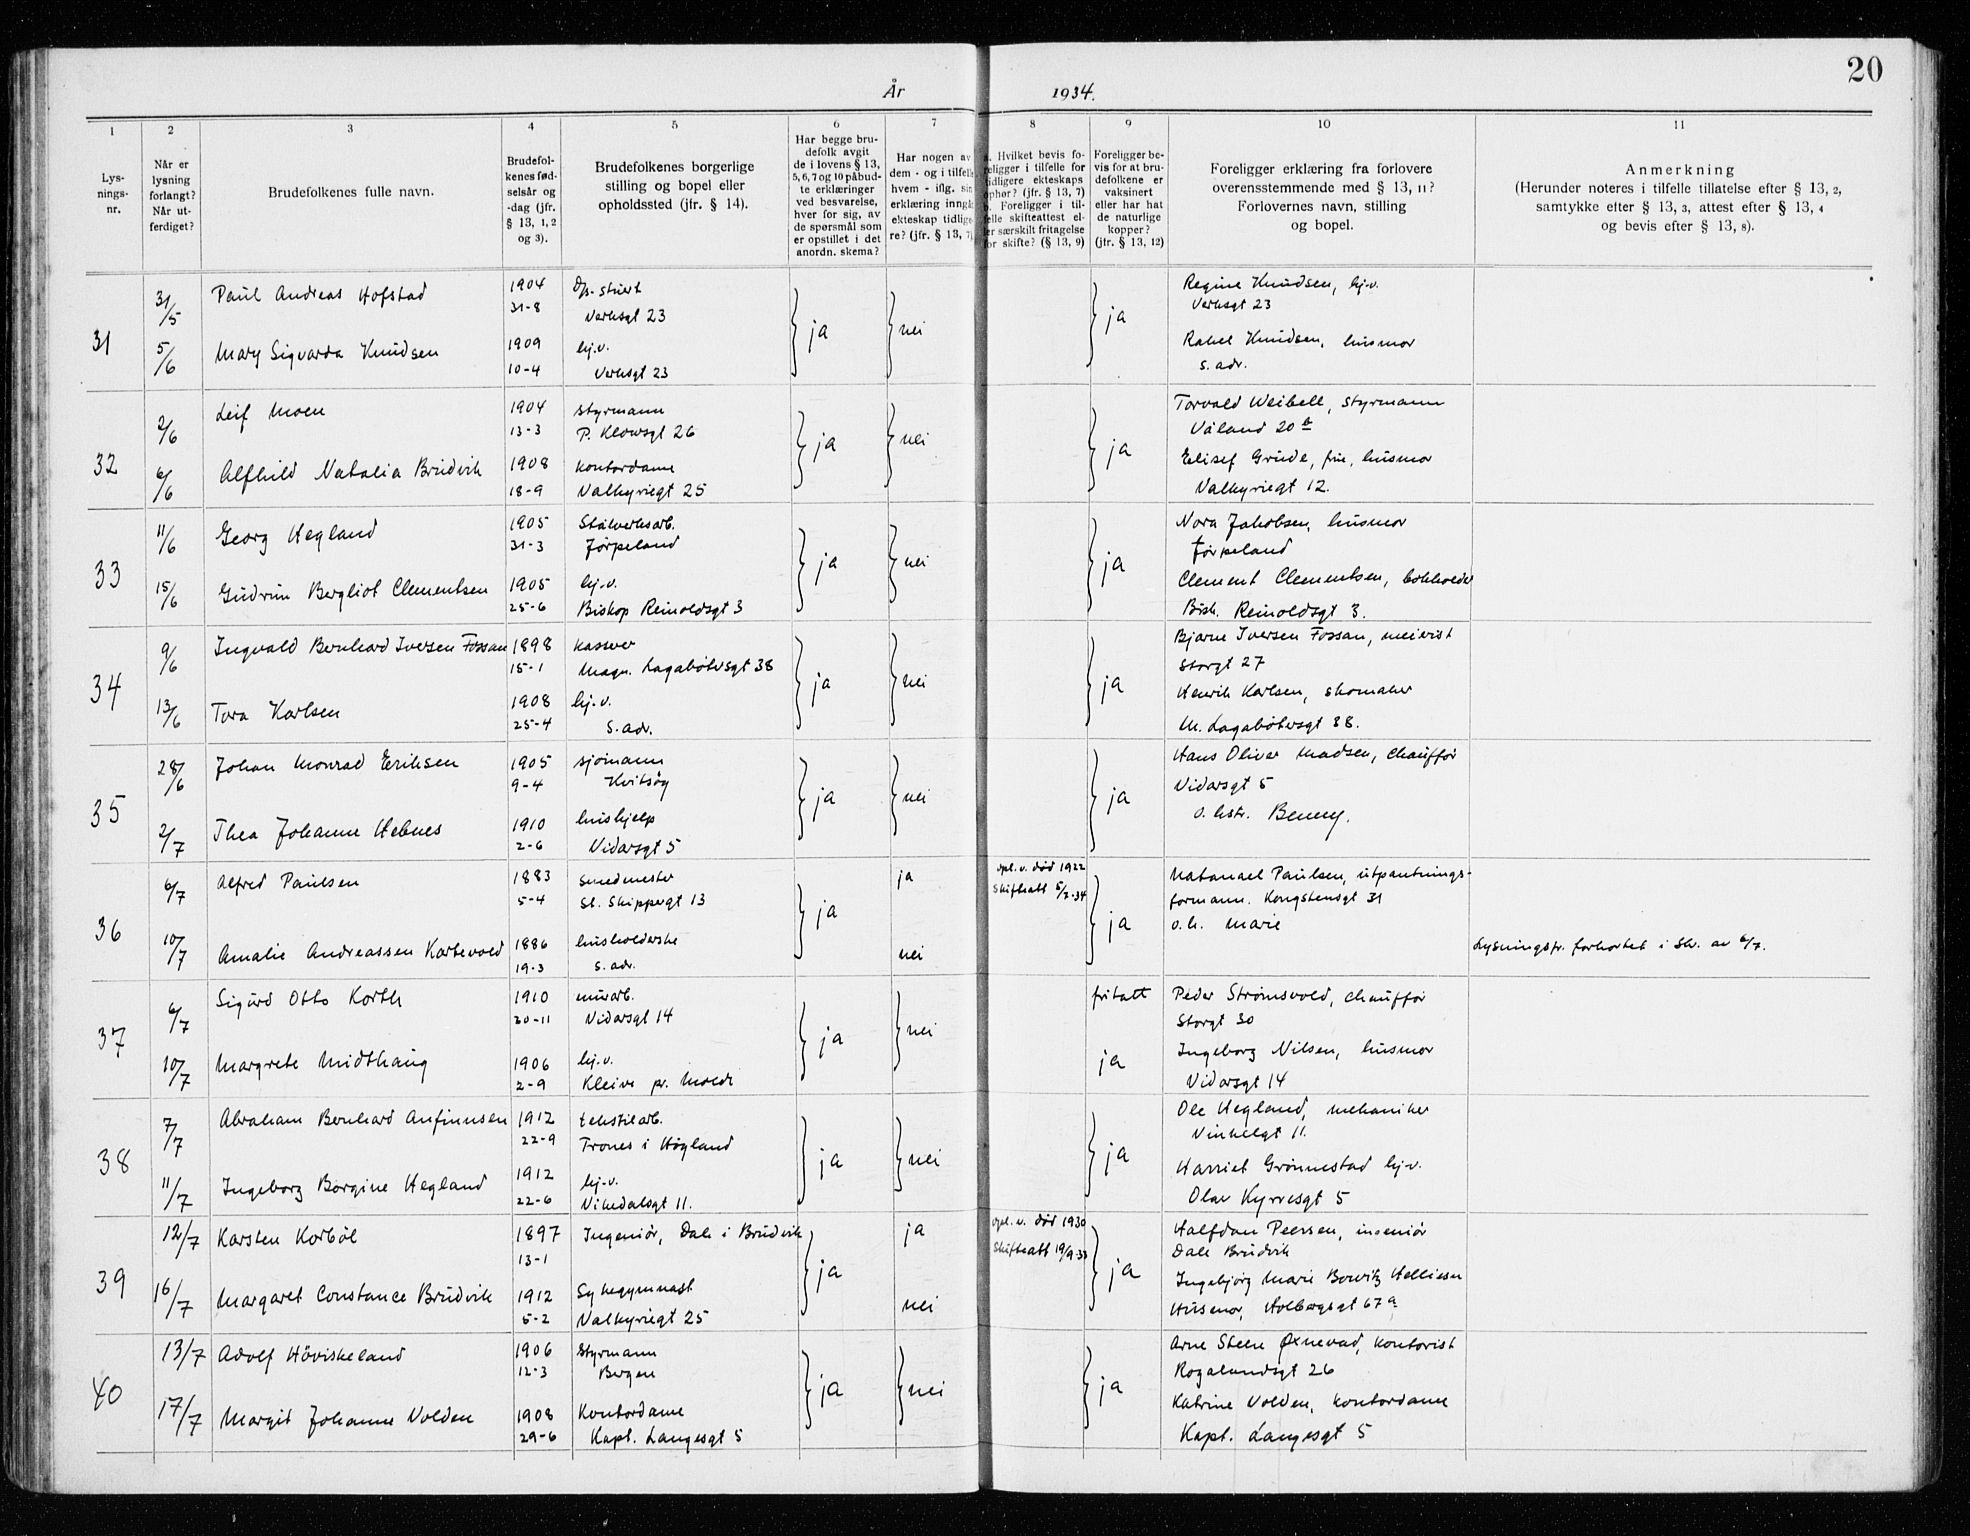 20
År 1934.
1 2 3 4 5 6 7 8 9 10 11
Lys-
nings-
nr.
Når er
lysning
forlangt?
Når ut-
ferdiget?
Brudefolkenes fulle navn.
Brudefol-
kenes fød-
selsår og
-dag (jfr.
§ 13, 1, 2
og 3).
Brudefolkenes borgerlige
stilling og bopel eller
opholdssted (jfr. § 14).
Har begge bru-
defolk avgit
de i lovens § 13,
5, 6, 7 og 10 påbud-
te erklæringer
ved besvarelse,
hver for sig, av
de spørsmål som
er opstillet i det
anordn. skema?
Har nogen av
dem - og i tilfelle
hvem - iflg. sin
erklæring inngå
ekteskap tidlige-
re? (jfr. § 13, 7)
a. Hvilket bevis fo-
religger i tilfelle for
tidligere ekteskaps
ophør? (jfr. § 13, 7)
b. Foreligger i til-
felle skifteattest el-
ler særskilt fritagelse
for skifte? (§ 13, 9)
Foreligger be-
vis for at bru-
defolkene er
vaksinert
eller har hat
de naturlige
kopper?
(jfr. § 13, 12)
Foreligger erklæring fra forlovere
overensstemmende med § 13, 11?
Forlovernes navn, stilling
og bopel.
Anmerkning
(Herunder noteres i tilfelle tillatelse efter § 13, 2,
samtykke efter § 13, 3, attest efter § 13, 4
og bevis efter § 13, 8).
31
31/5 Paul Andreas Hofstad 1904 d/s. stuert Regine Knudsen, hj.v.
31-8 Verksgt 23 ja nei ja Verksgt 23
5/6 Mary Sigvarda Knudsen 1909 hj.v. Rakel Knudsen, husmor
10-4 Verksgt 23 s. adr.
32
2/6 Leif Moen 1904 styrmann Torvald Weibell, styrmann
13-3 P. Klowsgt 26 ja nei ja Våland 20
6/6 Alfhild Natalia Brudvik 1908 kontordame Elisef Grude, frue, husmor
18-9 Valkyriegt 25 Valkyriegt 12.
33
11/6 Georg Hegland 1905 Stålverksarb. Nora Jakobsen, husmor
31-3 Jørpeland ja nei ja Jørpeland
15/6 Gudrun Bergliot Clementsen 1905 hj.v. Clement Clementsen, bokholder
25-6 Biskop Reinoldsgt 3 Bisk. Reinoldsgt 3.
34
9/6 Ingvald Bernhard Iversen Fossan 1898 kasserer Bjarne Iversen Fossan, meierist
15-1 Magn. Lagabøtersgt 38 ja nei ja Storgt 27
13/6 Tora Karlsen 1908 hj.v. Henrik Karlsen, skomaker
25-4 s. adr. M. Lagabøtersgt 38.
35
28/6 Johan Monrad Eriksen 1905 sjømann Hans Oliver Madsen, chauffør
9-4 Kvitsøy ja nei ja Vidarsgt 5
2/7 Thea Johanne Hebnes 1910 hushjelp o. hstr. Benny.
2-6 Vidarsgt 5
36
6/7 Alfred Paulsen 1883 smedmester ja opl. v. død 1922 Natanael Paulsen, utpantnings-
5-4 St. Skippergt 13 ja skifteatt 5/2-34 ja formann. Kongstensgt 31
10/7 Amalie Andreassen Kartevold 1886 husholderske nei o.h. Marie
19-3 s. adr. Lysningsfr. forkortet i Skr. av 6/7.
37
6/7 Sigurd Otto Korth 1910 murarb. fritatt Peder Strømsvold, chauffør
20-11 Vidarsgt 14 ja nei Storgt 30
10/7 Margrete Midthaug 1906 hj.v. ja Ingeborg Nilsen, husmor
2-9 Kleive pr. Molde Vidarsgt 14
38
7/7 Abraham Bernhard Anfinnsen 1912 tekstilarb. Ole Hegland, mekaniker
22-9 Trones i Høgland ja nei ja Vinkelgt 11.
11/7 Ingeborg Borgine Hegland 1912 hj.v. Harriet Grønnestad hj.v.
22-6 Nikedalsgt 11. Olav Kyrresgt 5
39
12/7 Karsten Korbøl 1897 Ingeniør, Dale i Bruvik ja opl. v. død 1930 Halfdan Peersen, ingeniør
13-1 ja skifteatt 19/9-33 ja Dale Bruvik
16/7 Margaret Constance Brudvik 1912 Sykegymnast nei Ingebjørg Marie Bowitz Helliesen
5-2 Valkyriegt 25 Husmor, Holbergsgt 67a
40
13/7 Adolf Høviskeland 1906 Styrmann Arne Steen Øxnevad, kontorist
12-3 Bergen ja nei ja Rogalandsgt 26
17/7 Margit Johanne Volden 1908 Kontordame Katrine Volden, kontordame
29-6 Kapt. Langesgt 5 Kapt. Langesgt 5